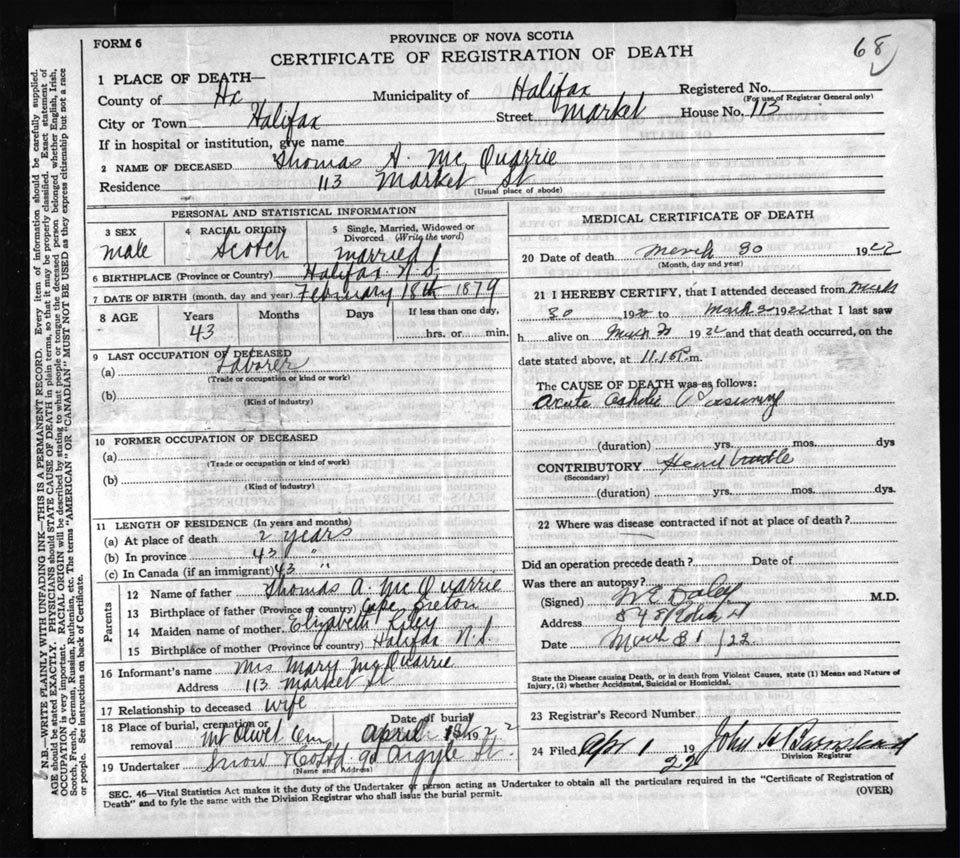 68
FORM 6
PROVINCE OF NOVA SCOTIA
CERTIFICATE OF REGISTRATION OF DEATH
1 PLACE OF DEATH—
County of Hx Municipality of Halifax Registered No.
(For use of Registrar General only)
City or Town Halifax Street Market House No. 113
If in hospital or institution, give name
2 NAME OF DECEASED Thomas A. Mc Quarrie
Residence 113 Market St
(Usual place of abode)
PERSONAL AND STATISTICAL INFORMATION
3 SEX 4 RACIAL ORIGIN 5 Single, Married, Widowed or Divorced (Write the word)
male Scotch Married
6 BIRTHPLACE (Province or Country) Halifax N.S.
7 DATE OF BIRTH (month, day and year) February 18th 1879
8 AGE Years Months Days If less than one day,
43 hrs. or min.
9 LAST OCCUPATION OF DECEASED
(a) Laborer
(Trade or occupation or kind or work)
(b)
(Kind of industry)
10 FORMER OCCUPATION OF DECEASED
(a)
(Trade or occupation or kind of work)
(b)
(Kind of industry)
11 LENGTH OF RESIDENCE (In years and months)
(a) At place of death 2 years
(b) In province 43 "
(c) In Canada (if an immigrant) 43 "
Parents
12 Name of father Thomas A. Mc Quarrie
13 Birthplace of father (Province or country) Cape Breton
14 Maiden name of mother Elizabeth Riley
15 Birthplace of mother (Province or country) Halifax N.S.
16 Informant's name Mrs Mary McQuarrie
Address 113 Market St
17 Relationship to deceased wife
18 Place of burial, cremation or removal Mt Olivet Cem Date of burial April 1st 1922
19 Undertaker Snow & Co Ltd 90 Argyle St.
(Name and Address)
MEDICAL CERTIFICATE OF DEATH
20 Date of death March 30 1922
(Month, day and year)
21 I HEREBY CERTIFY, that I attended deceased from March
30 19 to March 1922 that I last saw
h alive on March 30 1922 and that death occurred, on the
date stated above, at m.
The CAUSE OF DEATH was as follows:
Acute
(duration) yrs. mos. dys
CONTRIBUTORY Heart
(Secondary)
(duration) yrs. mos. dys.
22 Where was disease contracted if not at place of death?
Did an operation precede death? Date of
Was there an autopsy?
(Signed) M.D.
Address
Date March 31/22
State the Disease causing Death, or in death from Violent Causes, state (1) Means and Nature of
Injury, (2) whether Accidental, Suicidal or Homicidal.
23 Registrar's Record Number
24 Filed Apr 1 1922 John
Division Registrar
SEC. 46—Vital Statistics Act makes it the duty of the Undertaker or person acting as Undertaker to obtain all the particulars required in the "Certificate of Registration of
Death" and to fyle the same with the Division Registrar who shall issue the burial permit.
(OVER)
N.B.—WRITE PLAINLY WITH UNFADING INK—THIS IS A PERMANENT RECORD. Every item of information should be carefully supplied.
AGE should be stated EXACTLY. PHYSICIANS should STATE CAUSE OF DEATH in plain terms, so that it may be properly classified. Exact statement of
OCCUPATION is very important. RACIAL ORIGIN will be described by stating to what people or tongue the deceased person belonged whether English, Irish,
Scotch, French, German, Russian, Ruthenian, etc. The terms "AMERICAN" OR "CANADIAN" MUST NOT BE USED as they express citizenship but not a race
or people. See instructions on back of Certificate.